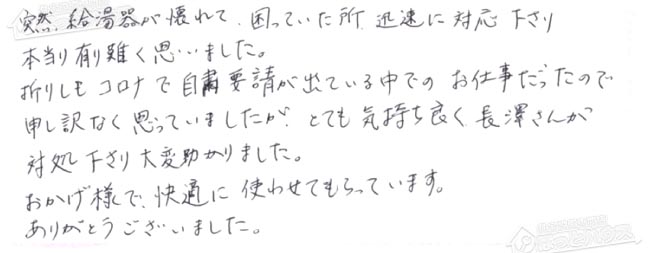 突然、給湯器が壊れて、困っていた所、迅速に対応下さり
本当に有り難く思いました。
折りしもコロナで自粛要請が出ている中でのお仕事だったので
申し訳なく思っていましたが、とても気持ち良く長澤さんが
対処下さり大変助かりました。
おかげ様で、快適に使わせてもらっています。
ありがとうございました。